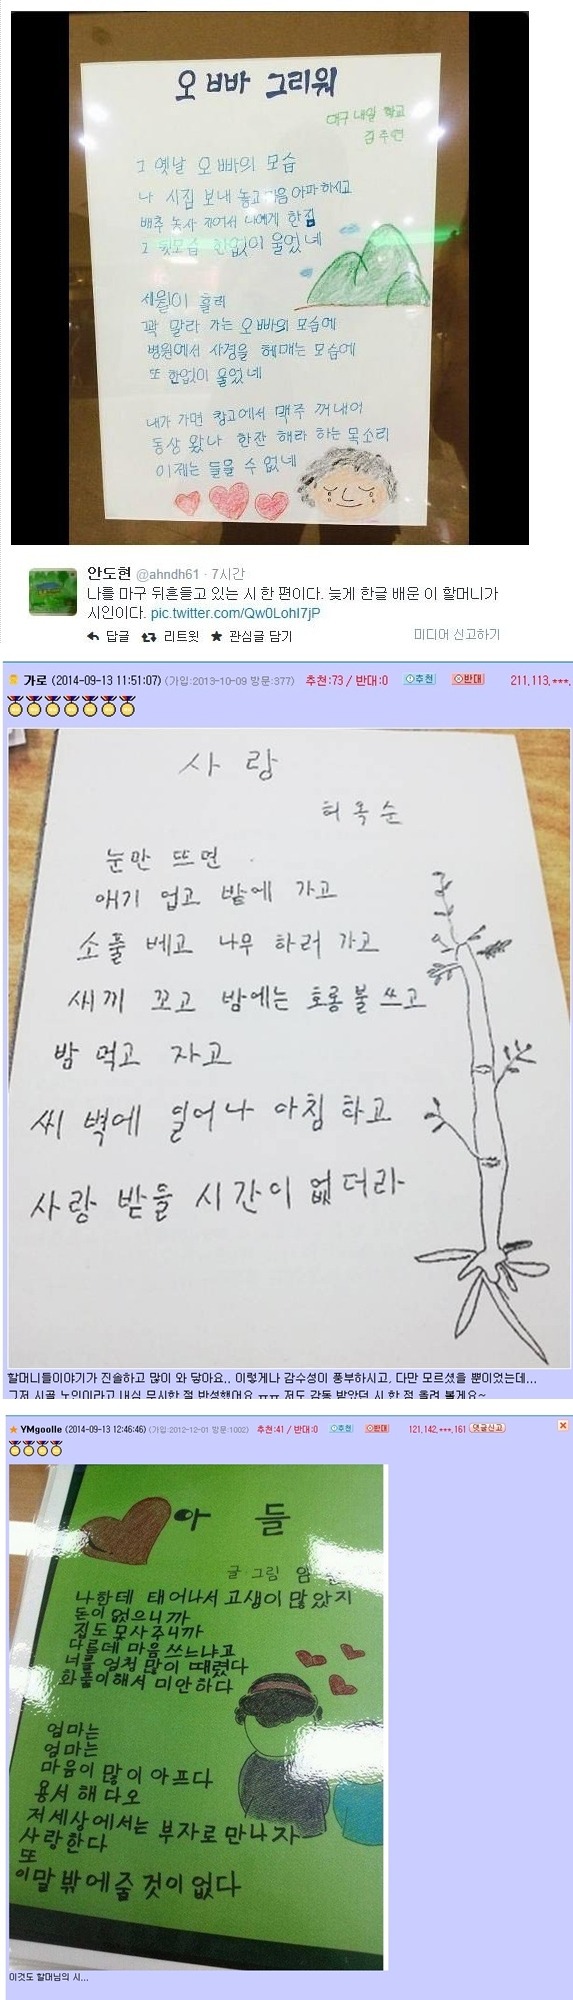 오빠 그리워
대구 내일 학교
김주연
그 옛날 오빠의 모습
나 시집 보내 놓고 마음 아파하시고
배추 농사 지어서 나에게 한짐
그 뒷모습 한없이 울었네
세월이 흘러
꽉 말라 가는 오빠의 모습에
병원에서 사경을 헤매는 모습에
또 한없이 울었네
내가 가면 창고에서 맥주 꺼내어
동상 왔나 한잔 해라 하는 목소리
이제는 들을 수 없네
안도현 @ahndh61 · 7시간
나를 마구 뒤흔들고 있는 시 한 편이다. 늦게 한글 배운 이 할머니가
시인이다. pic.twitter.com/Qw0LohI7jP
답글 리트윗 관심글 담기 미디어 신고하기
가로 (2014-09-13 11:51:07) (가입:2013-10-09 방문:377) 추천:73 / 반대:0 추천 반대 211.113.***.
사랑
허옥순
눈만 뜨면
애기 업고 밭에 가고
소풀 베고 나무 하러 가고
새끼 꼬고 밤에는 호롱불 쓰고
밤 먹고 자고
씨벽에 일어나 아침 하고
사랑 받을 시간이 없더라
할머니들이야기가 진솔하고 많이 와 닿아요.. 이렇게나 감수성이 풍부하시고, 다만 모르셨을 뿐이었는데...
그저 시골 노인이라고 내심 무시한 절 반성했어요 ㅠㅠ 저도 감동 받았던 시 한 점 올려 볼게요~
YMgoolle (2014-09-13 12:46:46) (가입:2012-12-01 방문:1002) 추천:41 / 반대:0 추천 반대 121,142,***,161 댓글신고
아들
글 그림
나한테 태어나서 고생이 많았지
돈이 없으니까
집도 못사주니까
다른데 마음 쓰느냐고
너를 엄청 많이 때렸다
화풀이해서 미안하다
엄마는
엄마는
마음이 많이 아프다
용서 해 다오
저 세상에서는 부자로 만나자
사랑한다
또
이말 밖에 줄 것이 없다
이것도 할머님의 시...